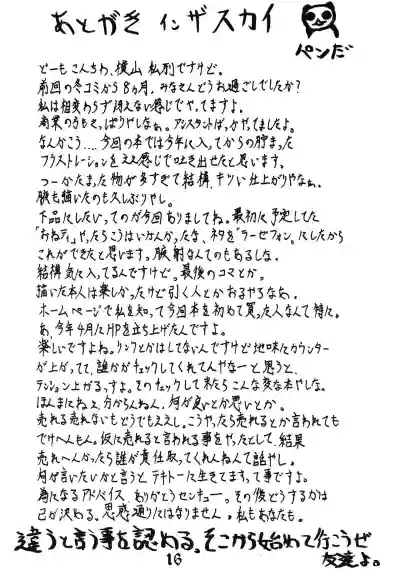 あとがき インザスカイ
ペンだ
どーもこんちわ、横山 私列ですけど。
前回の冬コミから8ヵ月、みなさんどうお過ごしでしたか?
私は相変わらず冴えない感じでやってますよ。
商業のうもさっぱりやしなぁ。アシスタントばっかやってましたよ。
なんかこう‥‥今回の本では今年に入ってからの貯まった
フラストレーションをええ感じで吐き出せたと思います。
つーかたまった物が多すぎて結構、キツい仕上がりやなぁ。
腋も描いたのも久しぶりやし。
下品にしたいってのが今回ありましてね。最初に予定してた
「おねティ」やったらこうはいかんかったな、ネタを「ラーゼフォン」にしたから
これができたと思います。腋射なんてのもあるしな。
結構気に入ってるんですけど。最後のコマとか。
描いた本人は楽しかったけど引く人とかおるやろなぁ。
ホームページで私を知って今回本を初めて買った人なんて特に。
あ、今年4月にHPを立ち上げたんですよ。
楽しいですよね。リンクとかはしてないんですけど地味にカウンター
が上がってて、誰かがチェックしてくれてんやなーと思うと、
テンション上がるっすよ。そのチェックして来たらこんな変な本やしな。
ほんまにねぇ、分からんねん、何が良いとか悪いとか。
売れる売れないもどうでもええし。こうやったら売れるとか言われても
でけへんもん。仮に売れると言われる事をやったとして、結果
売れへんかったら誰が責任取ってくれんねんて話やし。
何が言いたいかと言うと、テキトーに生きてますって事ですよ。
為になるアドバイス、ありがとうセンキュー。その後どうするかは
己が決める。思惑通りにはなりません。私もあなたも。
違うと言う事を認める。そこから始めて行こうぜ
友達よ。
16